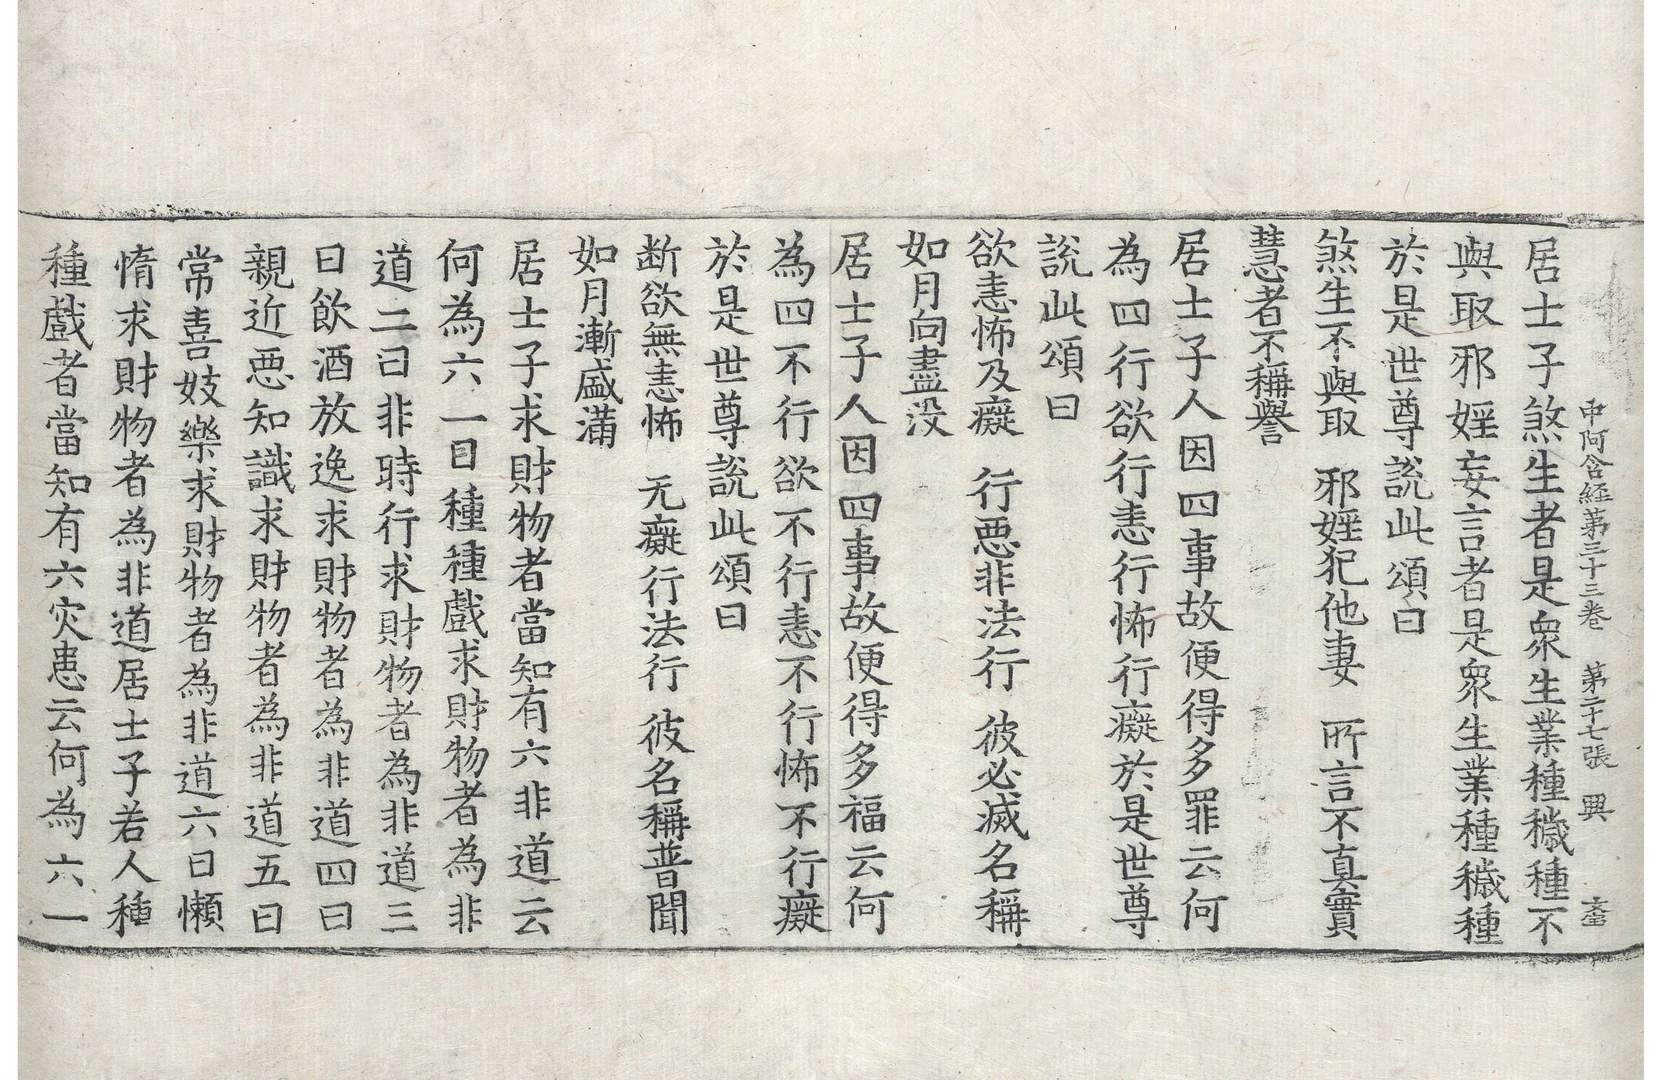 中阿含經第三十三卷 第二十七張 興
居士子煞生者是衆生業種穢種不
與取邪婬妄言者是衆生業種穢種
於是世尊説此頌曰
煞生不與取 邪婬犯他妻 所言不真實
慧者不稱譽
居士子人因四事故便得多罪云何
為四行欲行恚行怖行癡於是世尊
説此頌曰
欲恚怖及癡 行惡非法行 彼必滅名稱
如月向盡没
居士子人因四事故便得多福云何
為四不行欲不行恚不行怖不行癡
於是世尊説此頌曰
断欲無恚怖 无癡行法行 彼名稱普聞
如月漸盛滿
居士子求財物者當知有六非道云
何為六一曰種種戲求財物者為非
道二曰非時行求財物者為非道三
曰飲酒放逸求財物者為非道四曰
親近惡知識求財物者為非道五曰
常喜妓樂求財物者為非道六曰懶
惰求財物者為非道居士子若人種
種戲者當知有六灾患云何為六一